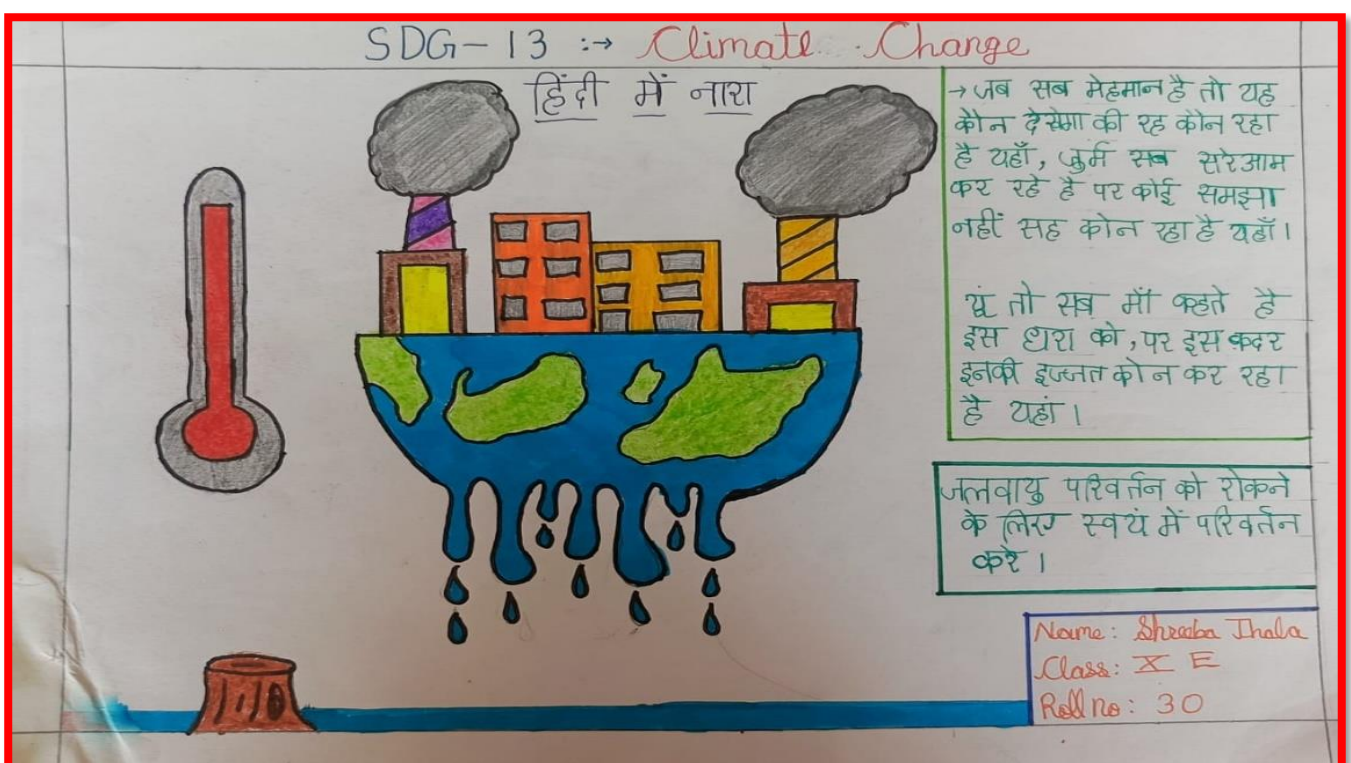 SDG-13 :→ Climate Change
हिंदी में नारा
→ जब सब मेहमान है तो यह
कौन देखेगा की रह कौन रहा
है यहाँ, जुर्म सब सरेआम
कर रहे है पर कोई समझा
नहीं सह कोन रहा है यहाँ।
यूं तो सब माँ कहते है
इस धरा को, पर इस कदर
इनकी इज्जत कोन कर रहा
है यहां।
जलवायु परिवर्तन को रोकने
के लिए स्वयं में परिवर्तन
करे।
Name: Sheeba Jhala
Class: X E
Roll no: 30